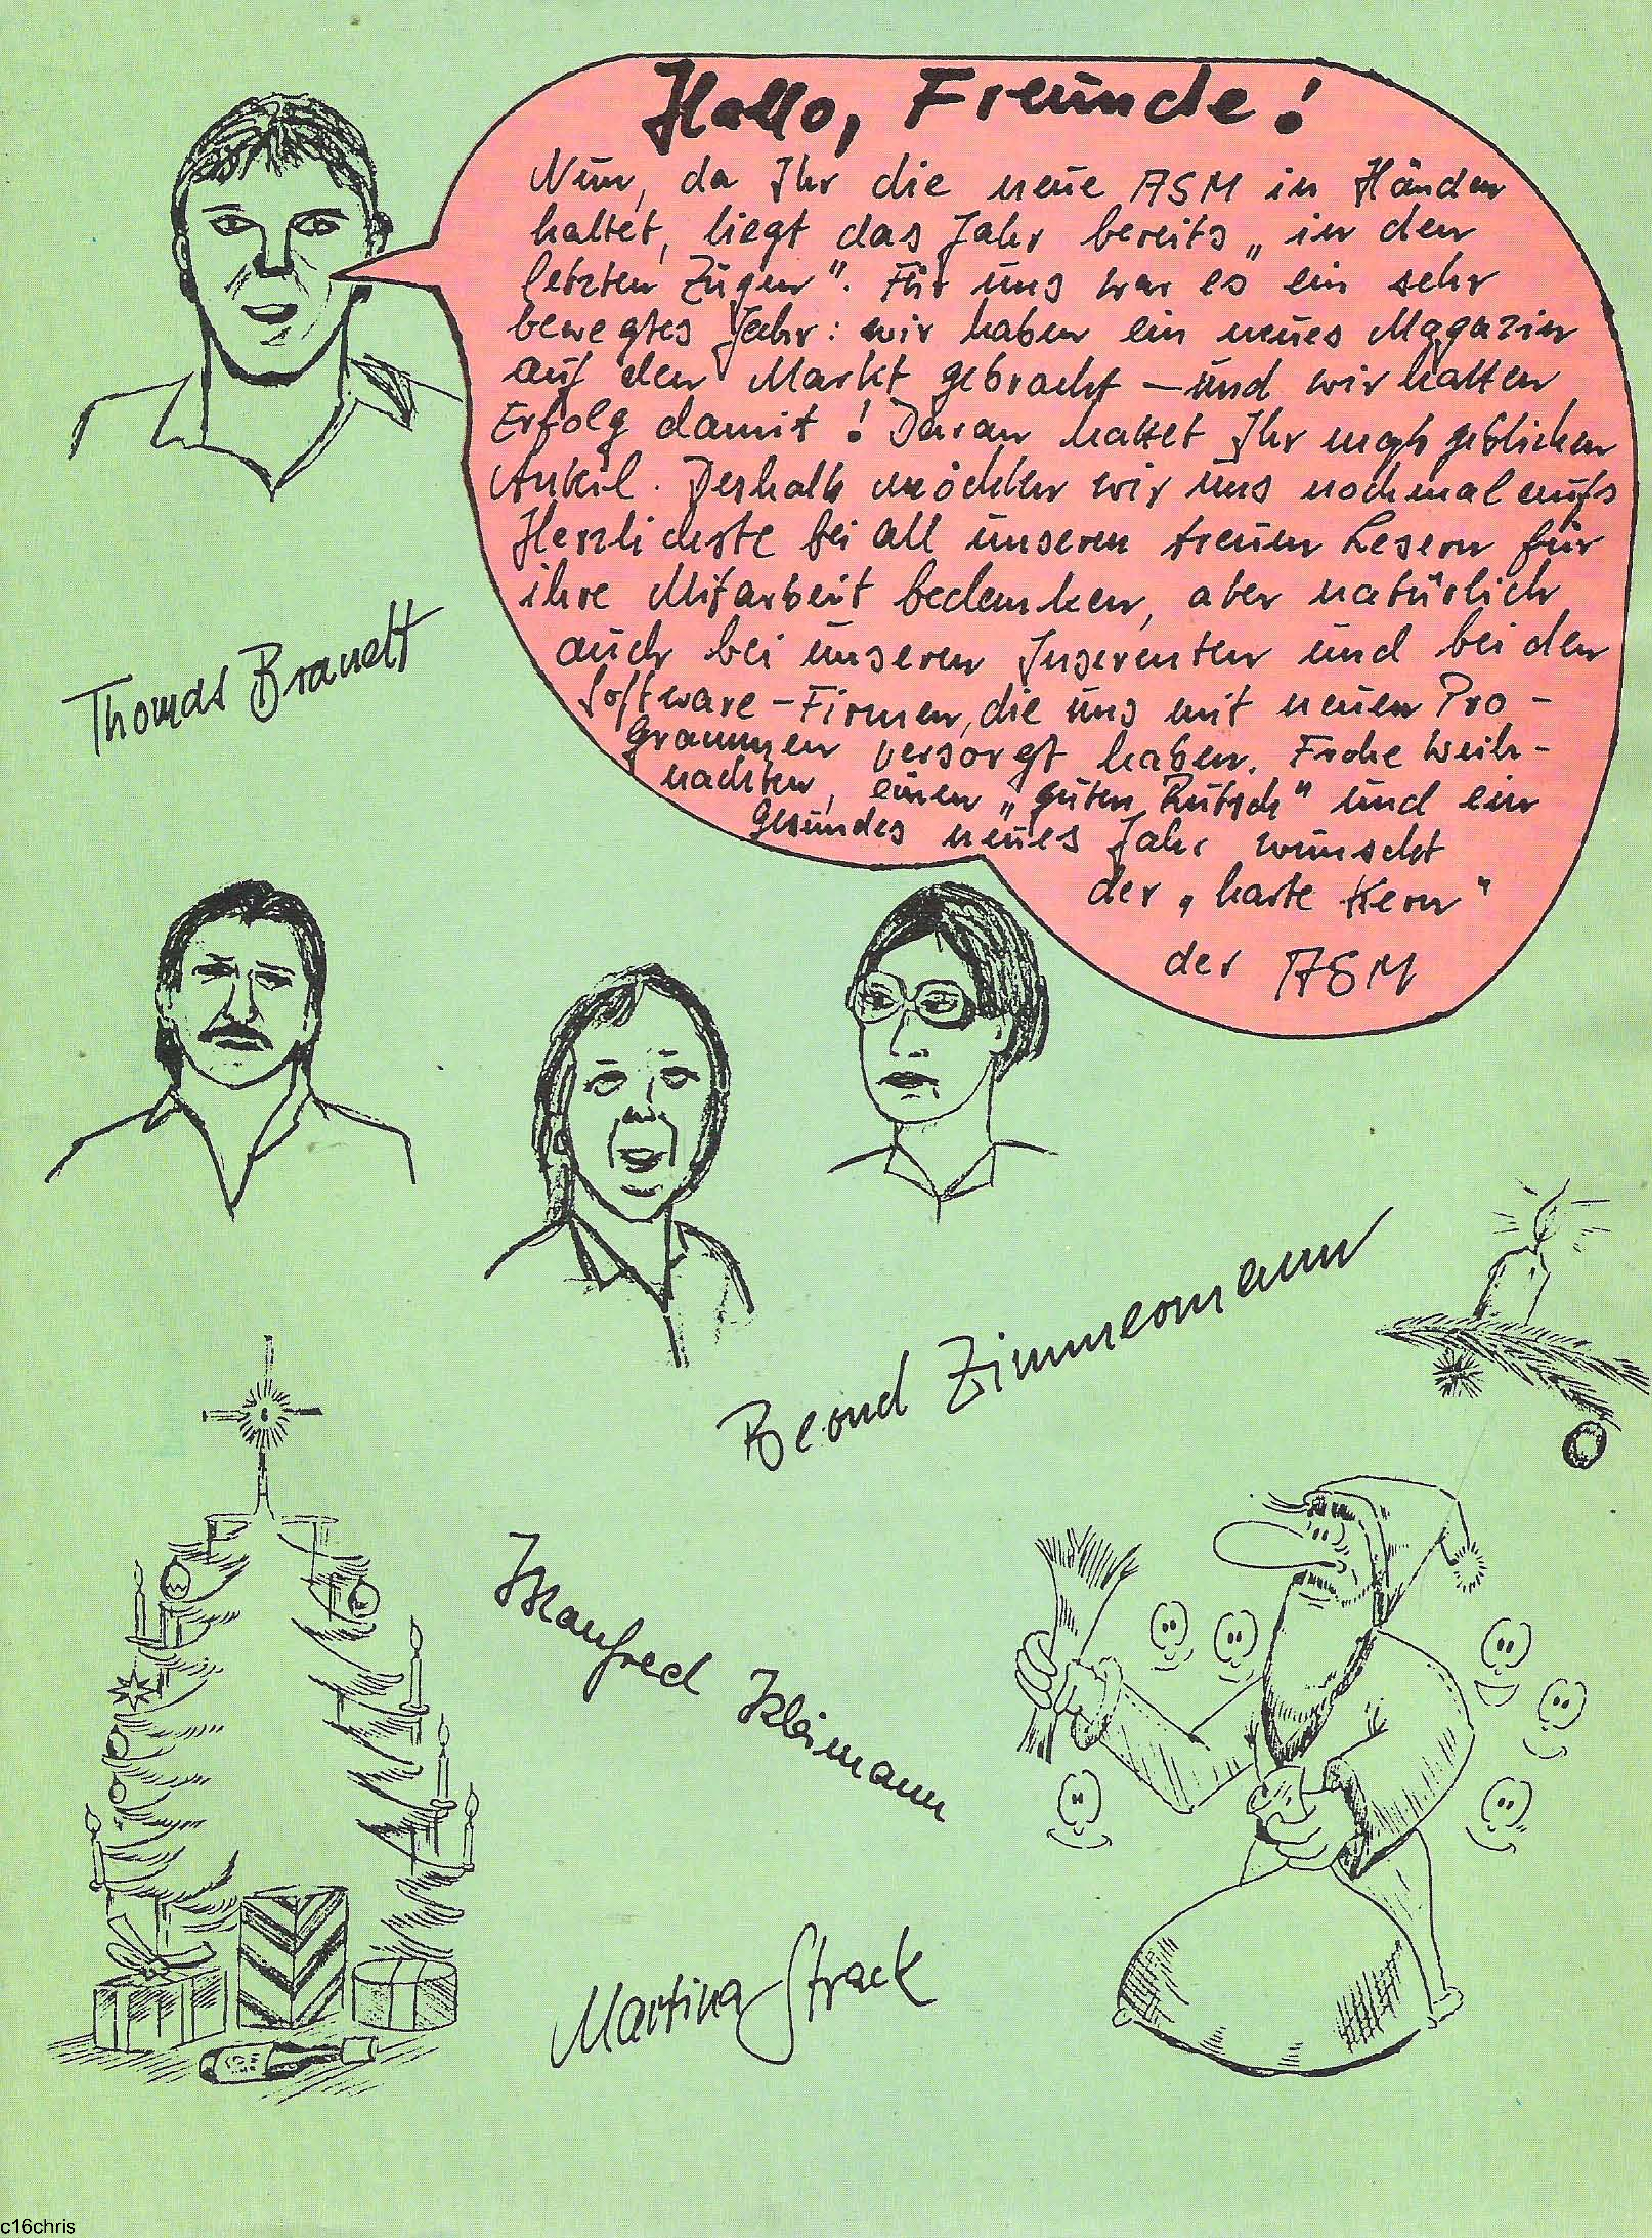 Hallo, Freunde!
Nun, da Ihr die neue ASM in Händen
haltet, liegt das Jahr bereits „in den
letzten Zügen". Für uns war es ein sehr
bewegtes Jahr: wir haben ein neues Magazin
auf den Markt gebracht – und wir hatten
Erfolg damit! Daran hattet Ihr maßgeblichen
Anteil. Deshalb möchten wir uns nochmal aufs
Herzlichste bei all unseren treuen Lesern für
ihre Mitarbeit bedanken, aber natürlich
auch bei unseren Inserenten und bei den
Software-Firmen, die uns mit neuen Pro-
grammen versorgt haben. Frohe Weih-
nachten, einen „guten Rutsch" und ein
gesundes neues Jahr wünscht
der „harte Kern"
der ASM
Thomas Brandt
Bernd Zimmermann
Manfred Kleimann
Martina Strack
c16chris